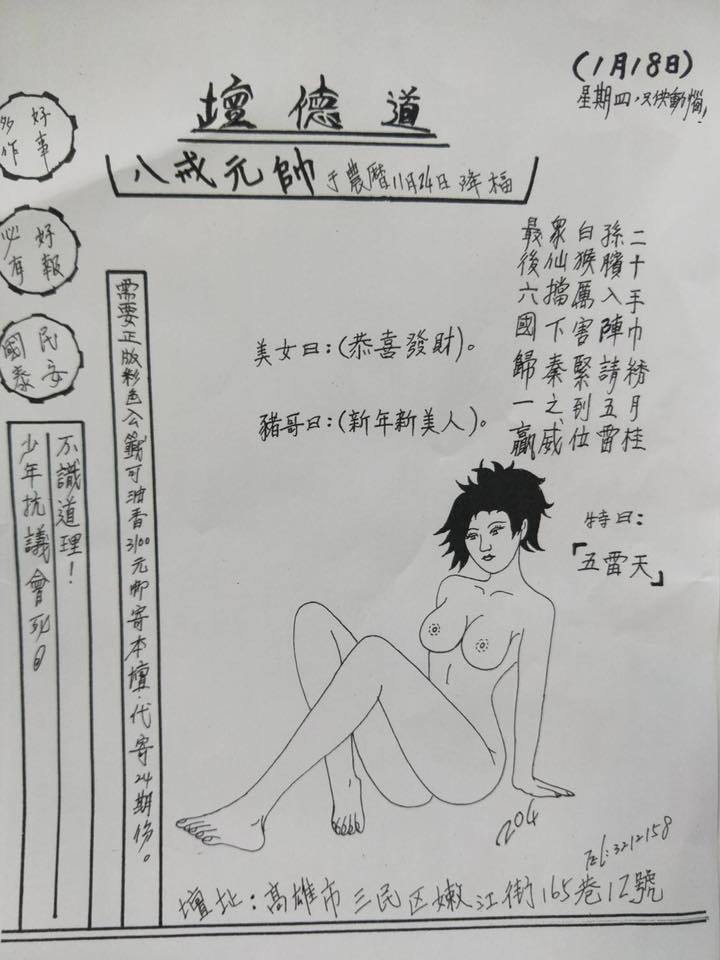 (1月18日)
星期四,只供
道德壇
八戒元帥于農曆11月24日降福
好事
多作
好報
必有
民安
國泰
二十手巾綉月桂
孫臏入陣請五雷
白猴厲害緊到位
眾仙擋下秦之威
最後六國歸一贏
特曰:
「五雷天」
美女曰:(恭喜發財)。
豬哥曰:(新年新美人)。
需要正版彩色公籤可油香3100元郵寄本壇.代寄24期份。
不識道理!
少年抗議會死
204
Tel:3212158
壇址:高雄市三民区嫩江街165巷12號